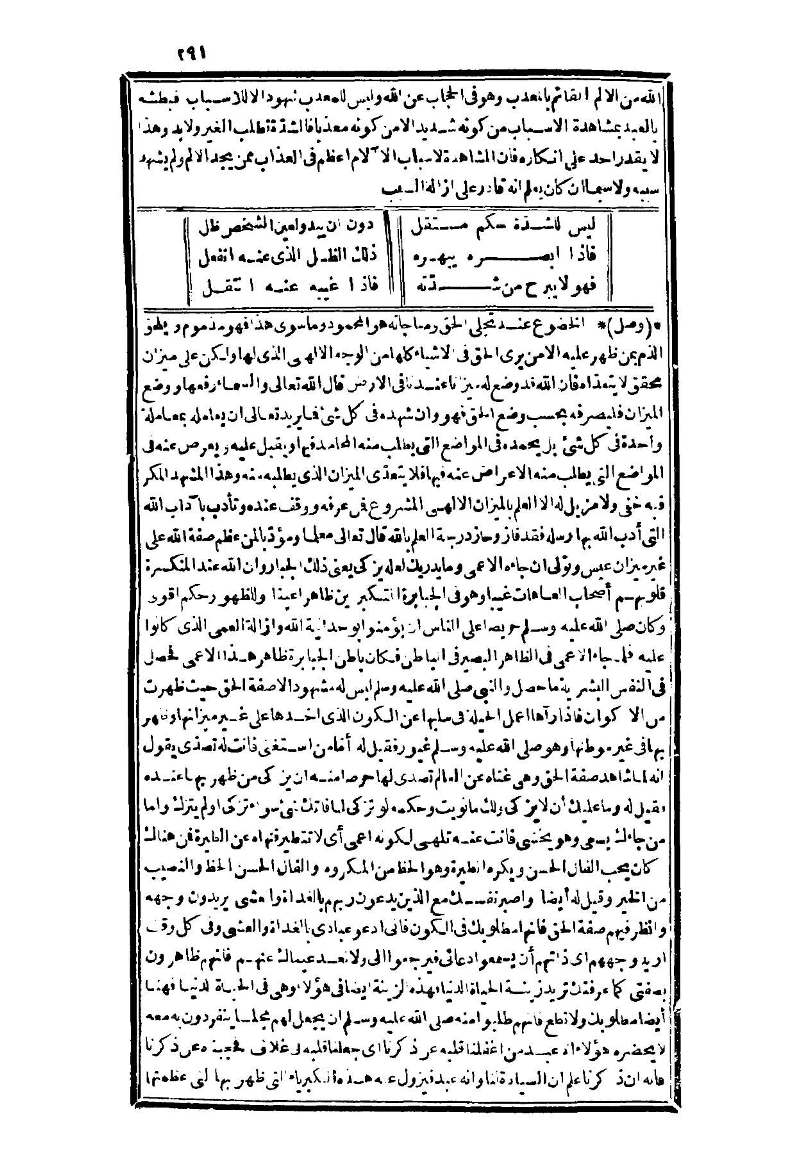 ٢٩١
الله من الالم القائم بالمعذب وهو فى الحجاب عن الله وليس للمعذب شهود الا للاسباب فبطشه
بالعبد بمشاهدة الاسباب من كونه شديد الا من كونه معذبا فالشدة تطلب الغير ولا بد وهذا
لا يقدر احد على انكاره فان المشاهدة لاسباب الآلام اعظم فى العذاب ممن يجد الالم ولم يشهد
سببه ولا سيما ان كان يعلم انه قادر على ازالة السبب
ليس للشدة حكم مستقل دون ان يبدو لعين الشخص ظل
فاذا ابصره يبهره ذلك الظل الذى عنه انفعل
فهو لا يبرح من شدته فاذا غيبه عنه انتقل
*(وصل)* الخضوع عند تجلى الحق ومناجاته هو المحمود وما سوى هذا فهو مذموم ويلحق
الذم بمن ظهر عليه الا من يرى الحق فى الاشياء كلها من الوجه الالهى الذى لها ولكن على ميزان
محقق لا يتعداه فان الله قد وضع له ميزانا عندنا فى الارض قال الله تعالى والسماء رفعها ووضع
الميزان فليصرفه بحسب وضع الحق فهو وان شهده فى كل شئ فما يريد تعالى ان يعامله بمعاملة
واحدة فى كل شئ بل يحمده فى المواضع التى يطلب منه المحامد فيها ويقبل عليه ويعرض عنه فى
المواضع التى يطلب منه الاعراض عنه فيها فلا يتعدى الميزان الذى يطلبه منه وهذا المشهد المكر
فيه خفى ولا مزيل له الا العلم بالميزان الالهى المشروع فمن عرفه ووقف عنده وتأدب بآداب الله
التى أدب الله بها رسله فقد فاز وحاز درجة العلم بالله قال تعالى معلما ومؤدبا لمن عظم صفة الله على
غير ميزان عبس وتولى ان جاءه الاعمى وما يدريك لعله يزكى يعنى ذلك الجبار وان الله عند المنكسرة
قلوبهم أصحاب العاهات غيبا وهو فى الجبابرة المتكبرين ظاهر اعينا وللظهور حكم اقوى
وكان صلى الله عليه وسلم حريصا على الناس ان يؤمنوا بوحدانية الله وازالة العمى الذى كانوا
عليه فلما جاء الاعمى فى الظاهر البصير فى الباطن فكان باطن الجبابرة ظاهر هذا الاعمى فحصل
فى النفس البشرية ما حصل والنبى صلى الله عليه وسلم ليس له مشهود الا صفة الحق حيث ظهرت
من الاكوان فاذا رآها اعمل الحيلة فى سلبها عن الكون الذى اخذها على غير ميزانها وظهر
بها فى غير موطنها وهو صلى الله عليه وسلم غيور فقيل له أما من استغنى فانت له تصدى يقول
انه لما شاهد صفة الحق وهى غناه عن العالم تصدى لها حرصا منه ان يزكى من ظهر بها عنده
فقيل له وما عليك أن لا يزكى ولك ما نويت وحكمه لو تزكى لما فاتك شئ سواء تزكى او لم يتزك واما
من جاءك يسعى وهو يخشى فانت عنه تلهى لكونه اعمى أى لا تتطير فنهاه عن الطيرة فمن هنالك
كان يحب الفال الحسن ويكره الطيرة وهو الحظ من المكروه والفال الحسن الحظ والنصيب
من الخير وقيل له أيضا واصبر نفسك مع الذين يدعون ربهم بالغداة والعشى يريدون وجهه
وانظر فيهم صفة الحق فانها مطلوبك فى الكون فانى ادعو عبادى بالغداة والعشى وفى كل وقت
اريد وجههم اى ذاتهم أن يسمعوا دعائى فيرجعوا الى ولا تعد عيناك عنهم فانهم ظاهرون
بصفتى كما عرفتك تريد زينة الحياة الدنيا فهذه الزينة ايضا فى هؤلاء وهى فى الحياة الدنيا فهنا
أيضا مطلوبك ولا تطع فانهم طلبوا منه صلى الله عليه وسلم ان يجعل لهم مجلسا ينفردون به معه
لا يحضره هؤلاء الاعبد من اغفلنا قلبه عن ذكرنا اى جعلنا قلبه فى غلاف فحجبناه عن ذكرنا
فانه ان ذكرنا علم ان السيادة لنا وانه عبد فيزول عنه هذه الكبرياء التى ظهر بها لتى عظمتها